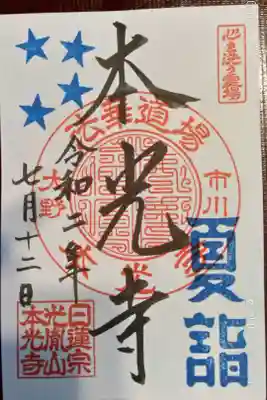 心を洗う霊場
本光寺
法華道場
市川
大野
令和二年
七月十二日
夏詣
日蓮宗
光胤山
本光寺